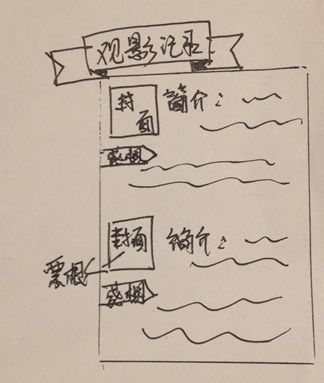 观影记录
封面
简介：
感想
封面
简介：
票根
感想